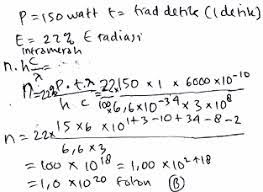 P = 150 watt t = trad detik (1 detik)
E = 22% E radiasi
inframerah
n. h c/λ
n = 22% P. t. λ / h c = 22 . 150 × 1 × 6000 × 10^-10 / 100 × 6,6 × 10^-34 × 3 × 10^8
n = 22 × 15 × 6 × 10^1+3-10+34-8-2 / 6,6 × 3
= 100 × 10^18 = 1,00 × 10^2+18
= 1,0 × 10^20 foton (B)